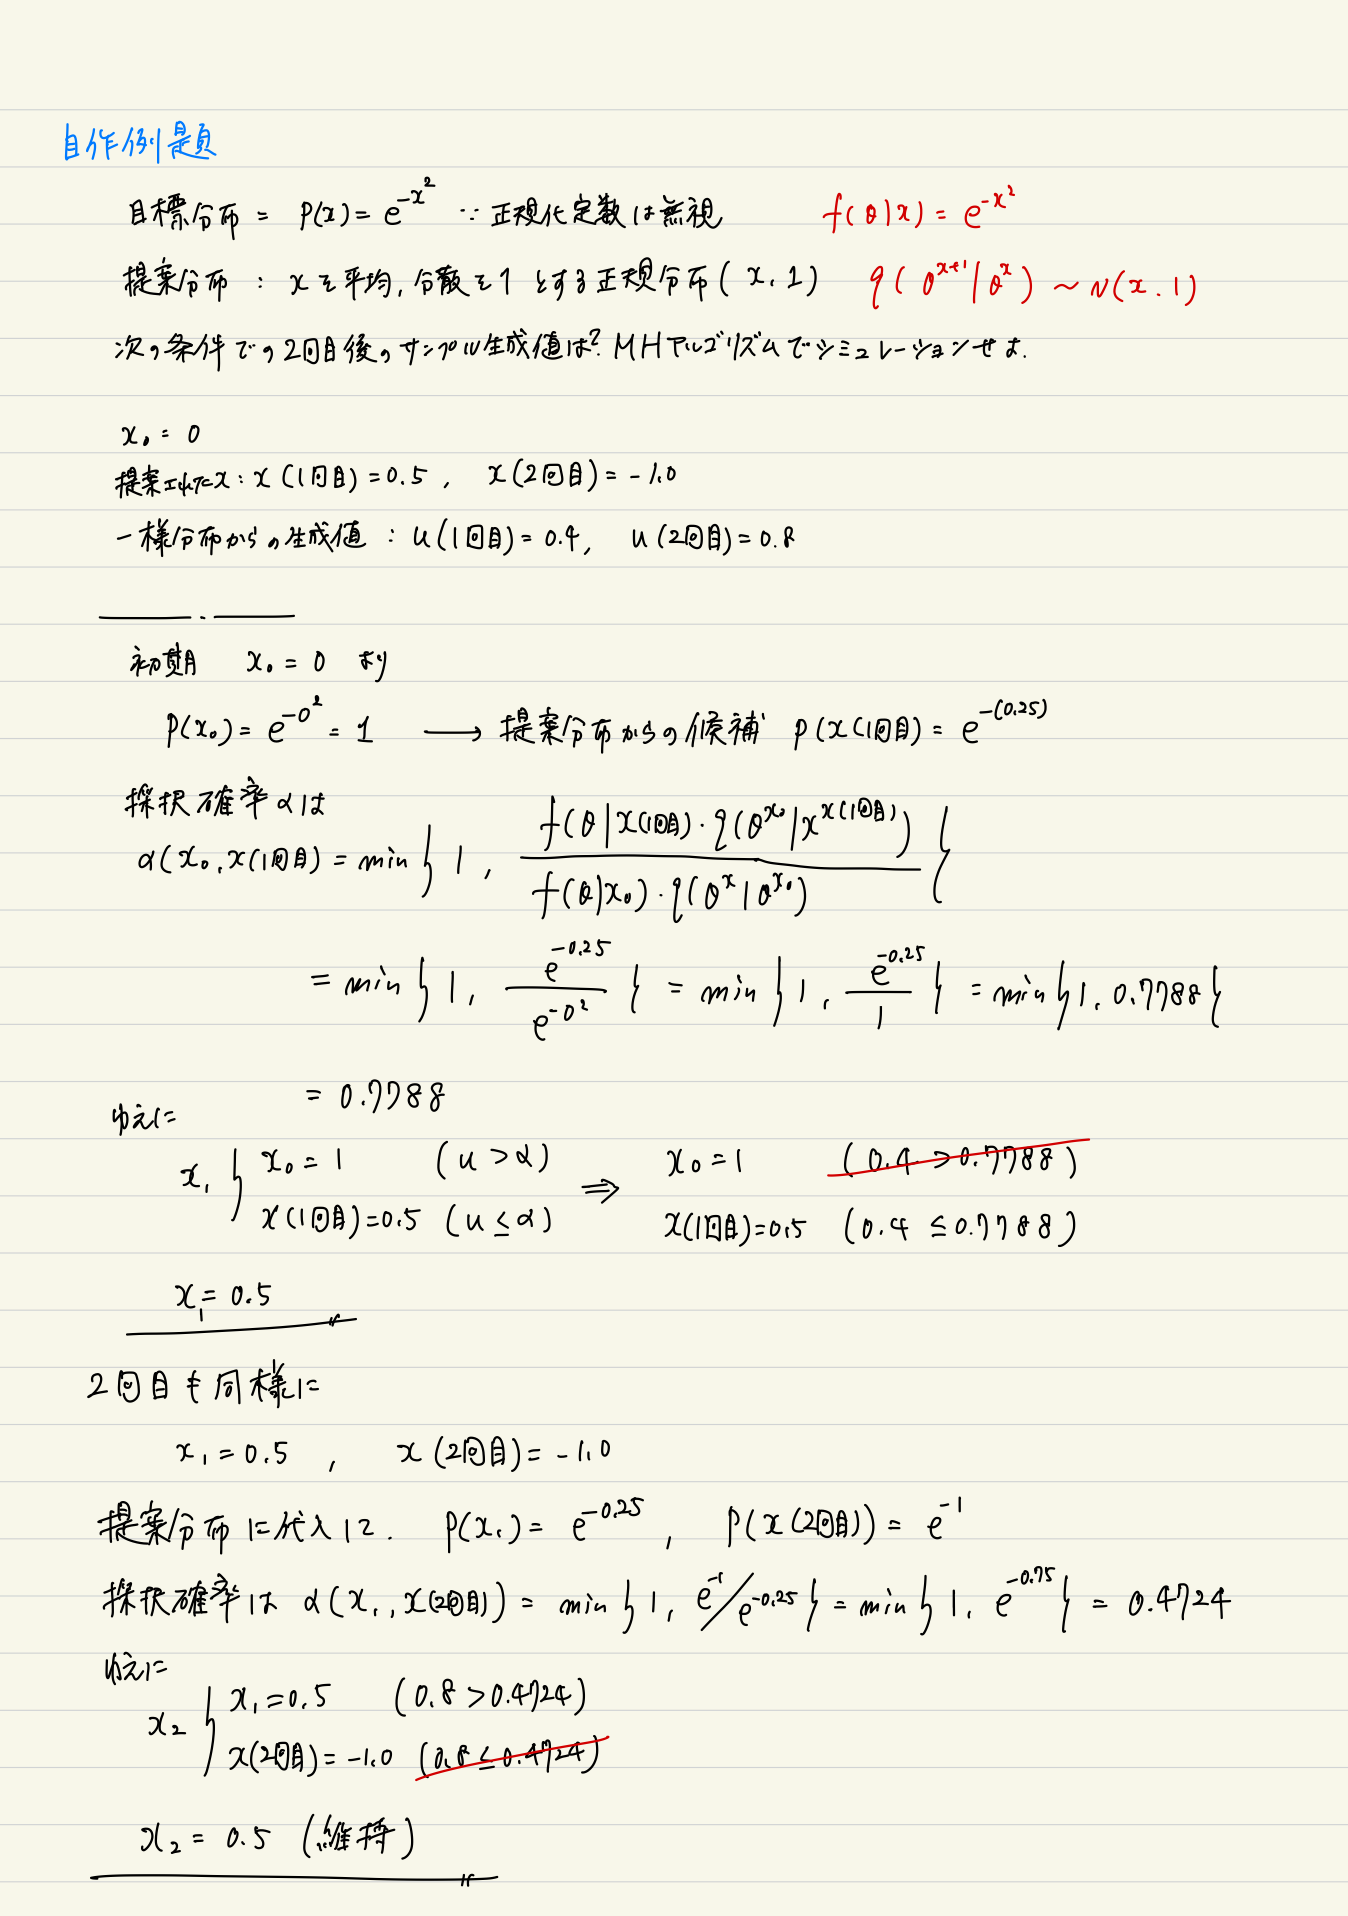 自作例題
目標分布 = P(x) = e^{-x^2} ∵ 正規化定数は無視 f(θ|x) = e^{-x^2}
提案分布 : xを平均, 分散を1とする正規分布(x, 1) q(θ^{x+1}|θ^x) ~ N(x. 1)
次の条件での2回目後のサンプル生成値は? MHアルゴリズムでシミュレーションせよ.
x_0 = 0
提案されたx : x(1回目) = 0.5 , x(2回目) = -1.0
一様分布からの生成値 : u(1回目) = 0.4, u(2回目) = 0.8
初期 x_0 = 0 より
P(x_0) = e^{-0^2} = 1 → 提案分布からの候補 P(x(1回目) = e^{-(0.25)}
採択確率αは
α(x_0, x(1回目) = min{ 1 , \frac{f(θ|x(1回目)・q(θ^{x_0}|x^{x(1回目)})}{f(θ|x_0)・q(θ^x|θ^{x_0})} }
= min{ 1, \frac{e^{-0.25}}{e^{-0^2}} } = min{ 1, \frac{e^{-0.25}}{1} } = min{ 1, 0.7788 }
= 0.7788
ゆえに
x_1 { x_0 = 1 (u > α) ⇒ x_0 = 1 (0.4 > 0.7788)
x(1回目) = 0.5 (u ≤ α) x(1回目) = 0.5 (0.4 ≤ 0.7788)
x_1 = 0.5
2回目も同様に
x_1 = 0.5 , x(2回目) = -1.0
提案分布に代入して. P(x_1) = e^{-0.25} , P(x(2回目)) = e^{-1}
採択確率は α(x_1, x(2回目)) = min{ 1, e^{-1}/e^{-0.25} } = min{ 1, e^{-0.75} } = 0.4724
ゆえに
x_2 { x_1 = 0.5 (0.8 > 0.4724)
x(2回目) = -1.0 (0.8 ≤ 0.4724)
x_2 = 0.5 (維持)